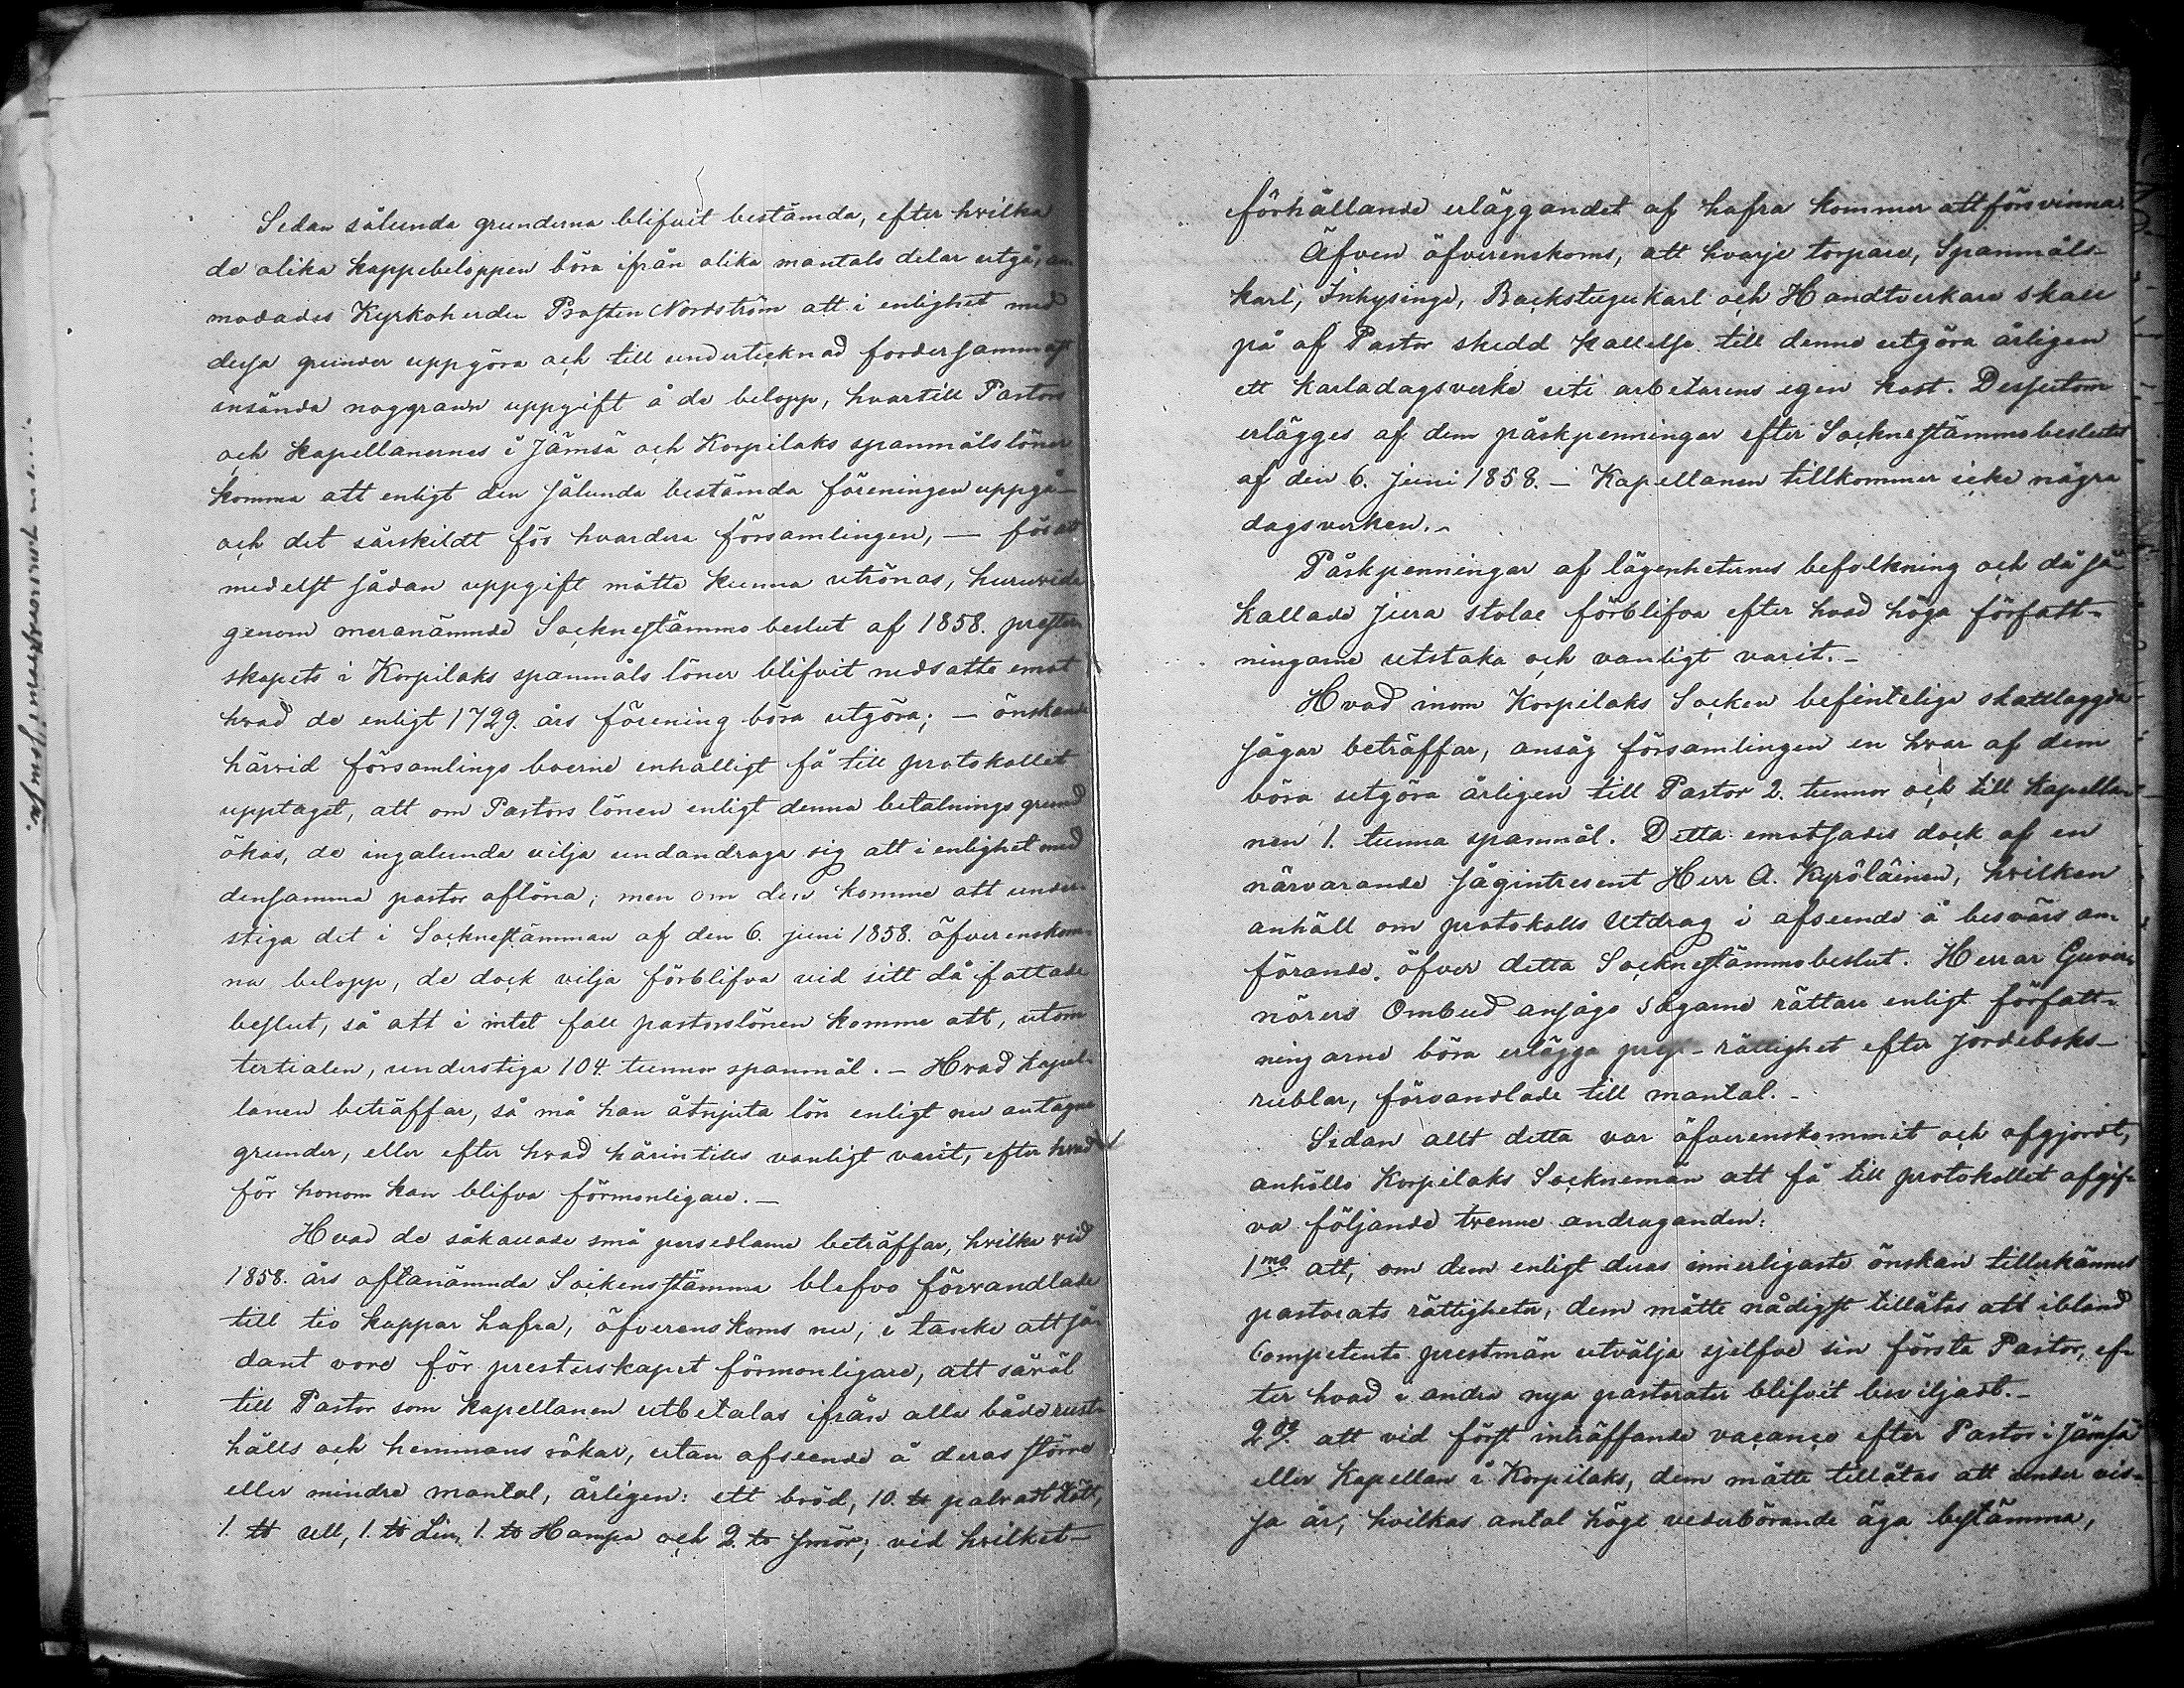 Sedan sålunda grunderna blifvit bestämda, efter hvilka
de olika kappebeloppen böra ifrån olika mantals delar utgå, an-
modades Kyrkoherden Prosten Nordström att i enlighet med
dessa grunder uppgöra och till undertecknad fordersammast
insända noggrann uppgift å de belopp, hvartill Pastors
och Kapellanernes i Jämsä och Korpilaks spanmålslöner
komma att enligt den sålunda bestämda föreningen uppgå
och det särskildt för hvardera församlingen, — för att
medelst sådan uppgift måtte kunna utrönas, huruvida
genom meranämnde Sockenstämmo beslut af 1858. prester-
skapets i Korpilaks spanmåls löner blifvit nedsatte emot
hvad de enligt 1729. års förening böra utgöra; — önskande
härvid församlings boerne enhälligt få till protokollet
upptaget, att om Pastors lönen enligt denna betalnings grund
ökas, de ingalunda vilja undandraga sig att i enlighet med
densamma pastor aflöna; men om den komme att under-
stiga det i Sockenstämman af den 6. juni 1858. öfverenskom-
na belopp, de dock vilja förblifva vid sitt då fattade
beslut, så att i intet fall pastorslönen komme att, utom
tertialen, understiga 104. tunnor spanmål. — Hvad Kapel-
lanen beträffar, så må han åtnjuta lön enligt nu antagne
grunder, eller efter hvad härintills vanligt varit, efter hvad
för honom kan blifva förmonligare. —
Hvad de såkallade små persedlarne beträffar, hvilka vid
1858. års oftanämnda Sockenstämma blefvo förvandlade
till tio kappar hafra, öfverenskoms nu, i tanke att så-
dant vore för presterskapet förmonligare, att såväl
till Pastor som Kapellanen utbetalas ifrån alla både rust-
hålls och hemmans rökar, utan afseende å deras större
eller mindre mantal, årligen: ett bröd, 10. ℔ palvadt Kött,
1. ℔ ull, 1. ℔ Lin, 1. ℔ Hampa och 2. ℔ Smör; vid hvilket
förhållande erläggandet af hafra kommer att försvinna.
Äfven öfverenskoms, att hvarje torpare, Spanmåls-
karl, Inhysinge, Backstugukarl och Handtverkare skall
på af Pastor skedd Kallelse till denne utgöra årligen
ett karladagsverke uti arbetarens egen kost. Dessutom
erlägges af dem påskpenningar efter Sockenstämmobeslutet
af den 6. Juni 1858. — Kapellanen tillkommer icke några
dagsverken. —
Påskpenningar af lägenheternes befolkning och då så
kallade jura stolae förblifva efter hvad höga författ-
ningarne utstaka och vanligt varit. —
Hvad inom Korpilaks Socken befinteliga skattlaggda
sågar beträffar, ansåg församlingen en hvar af dem
böra utgöra årligen till Pastor 2. tunnor och till Kapella-
nen 1. tunna spanmål. Detta emotsades dock af en
närvarande sågintresent Herr A. Kyröläinen, hvilken
anhöll om protokolls Utdrag i afseende å besvärs an-
förande, öfver detta Sockenstämmobeslut. Herrar Guver-
nörers Ombud ansågo sågarne rättare enligt författ-
ningarne böra erlägga prest-rättighet efter Jordeboks-
rublar, förvandlade till mantal. —
Sedan allt detta var öfverenskommit och afgjordt,
anhöllo Korpilaks Sockenemän att få till protokollet afgif-
va följande trenne andraganden:
1mo att, om dem enligt deras innerligaste önskan tillerkännes
pastorats rättigheter, dem måtte nådigst tillåtas att ibland
Competente prestmän utvälja sjelfve sin första Pastor, ef-
ter hvad i andra nya pastorater blifvit beviljadt. —
2do att vid först inträffande vacance efter Pastor i Jämsä
eller Kapellan i Korpilaks, dem måtte tillåtas att under vis-
sa år, hvilkas antal höge vederbörande äga bestämma,